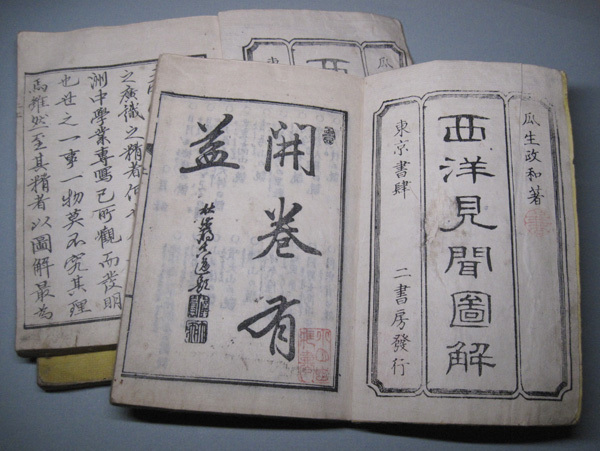 瓜生政和著
西洋見聞圖解
東京書肆
二書房發行
開卷有
益
東
西
之廣識之精者
洲中學業專嗎已所觀而發明
也世之一事一物莫不究其理
焉雖然至其精者以圖解最為